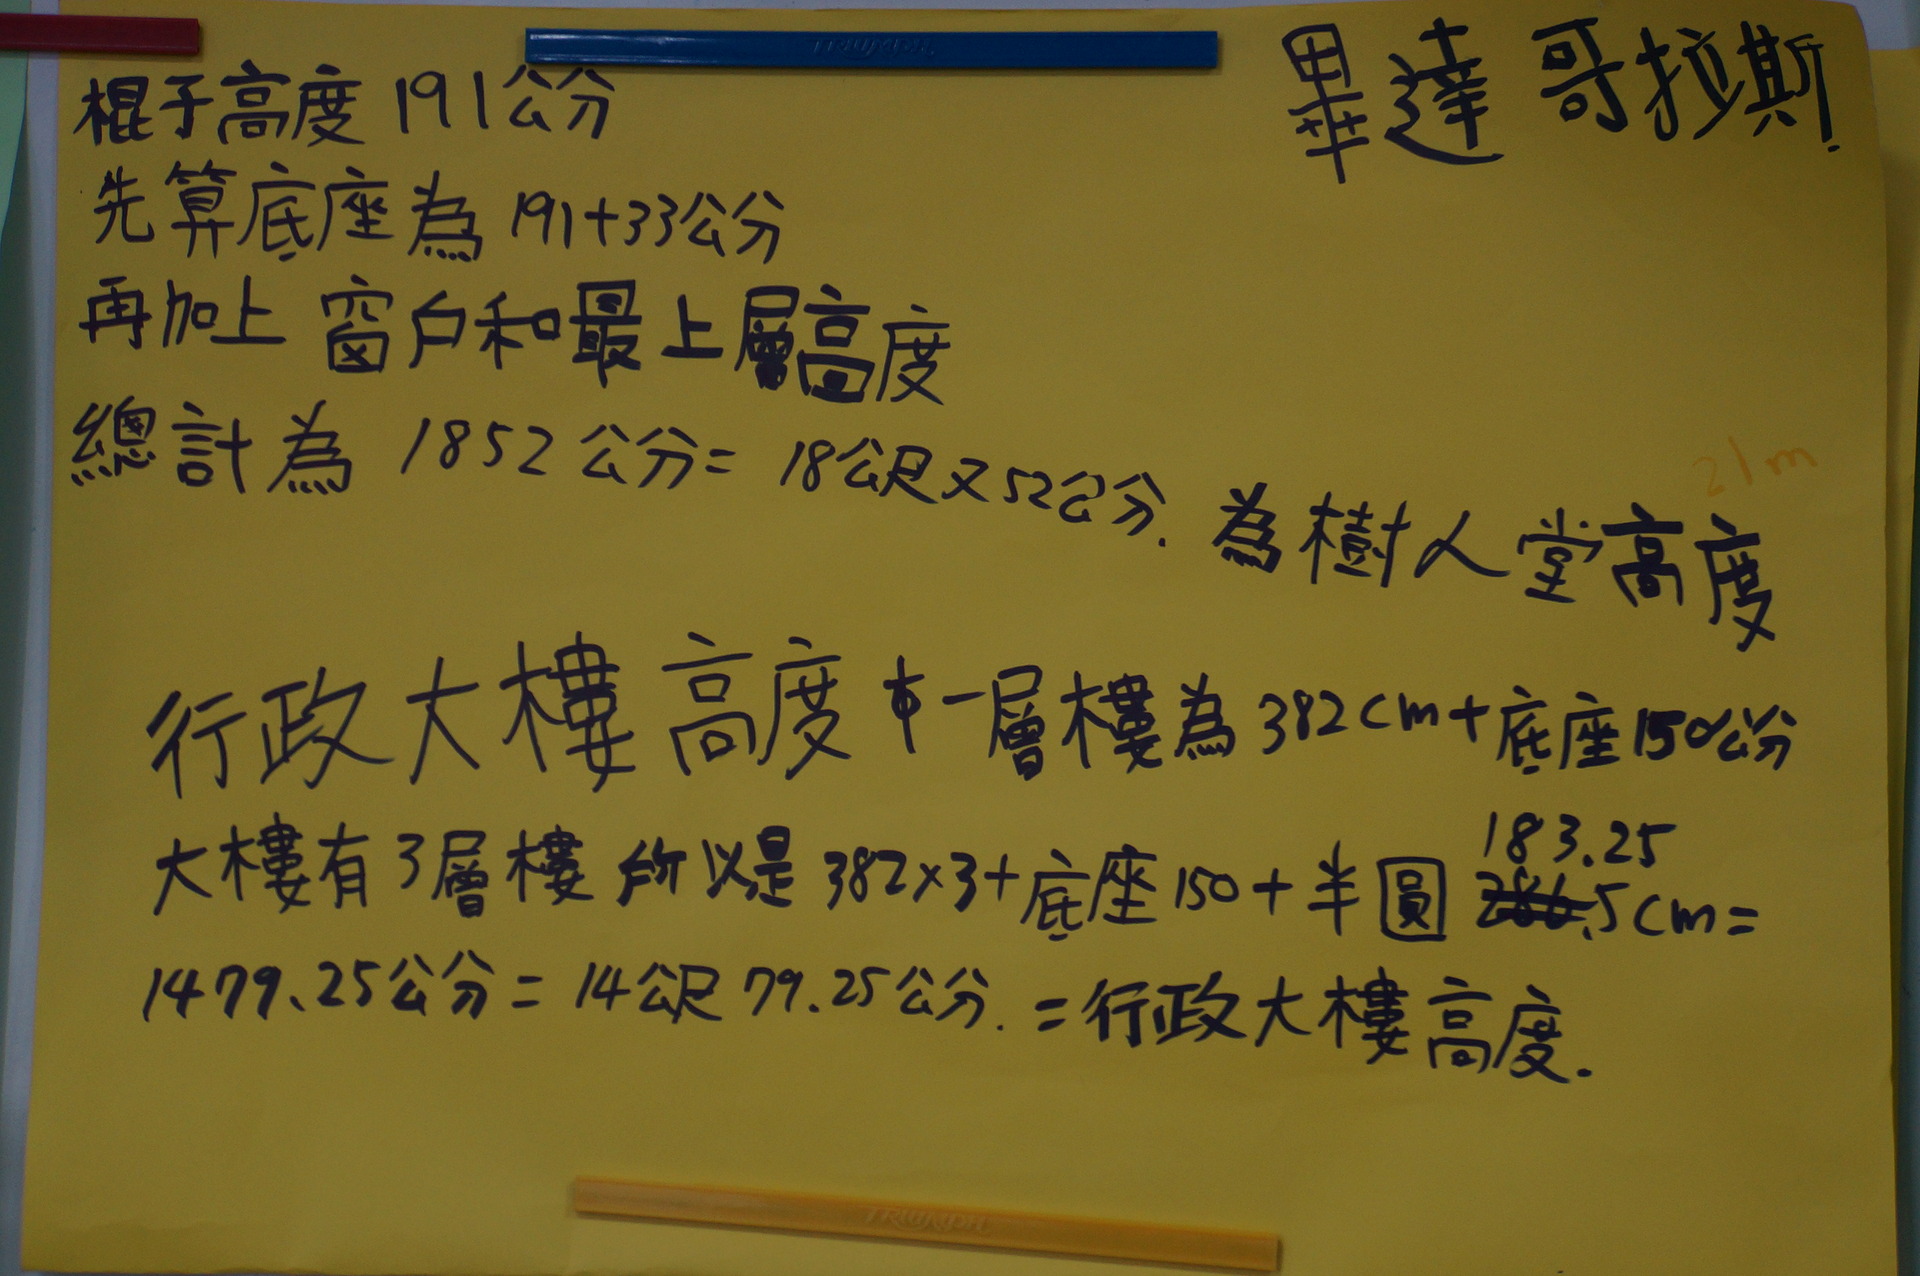 TRIUMPH
畢達哥拉斯.
棍子高度 191公分
先算底座為 191+33公分
再加上 窗戶和最上層高度
總計為 1852公分= 18公尺又52公分. 為樹人堂高度
21m
行政大樓高度 一層樓為382cm+底座150公分
大樓有3層樓 所以是 382×3+底座150+半圓 183.25 cm=
1479.25公分=14公尺79.25公分. =行政大樓高度.
TRIUMPH